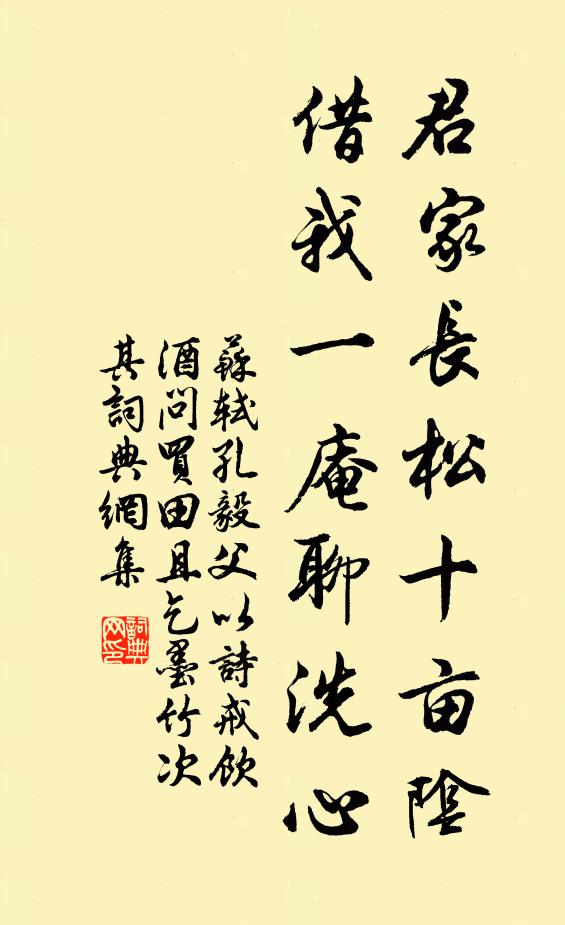 君家長松十亩陰
借我一庵聊洗心
蘇軾孔毅父以詩戒飲
酒問買田且乞墨竹次
其詞典網集
詞典网印